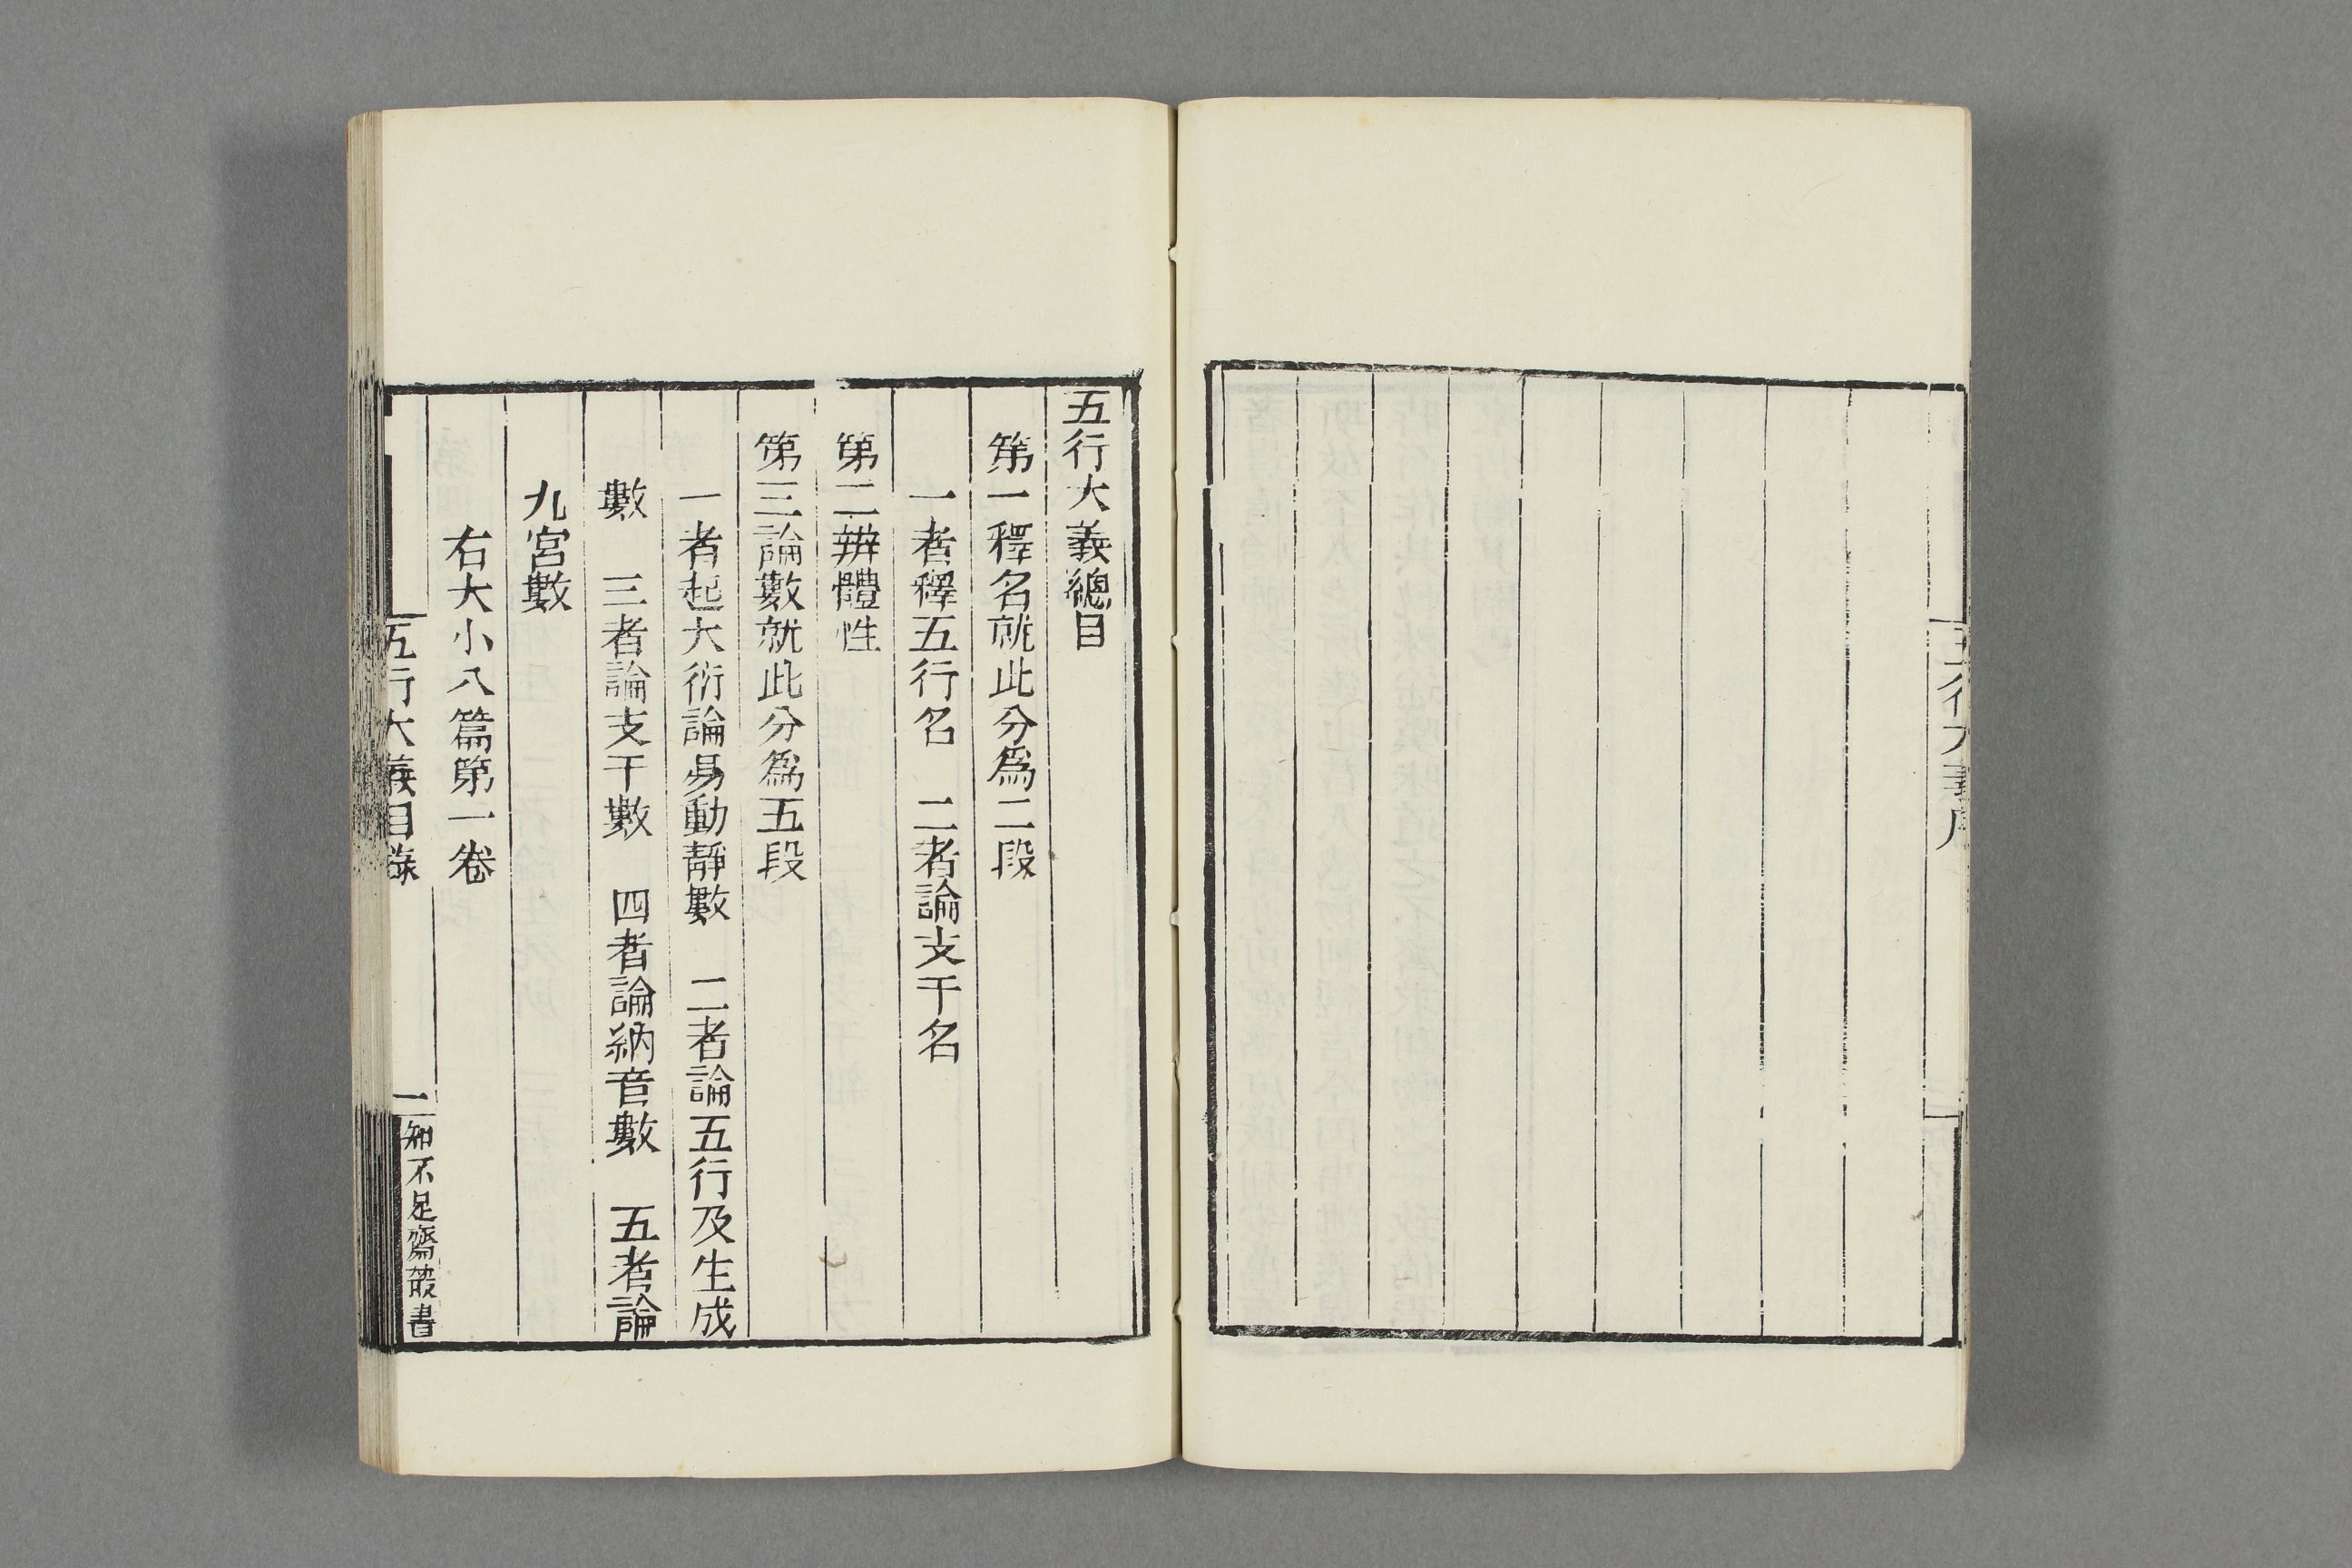 五行大義序
五行大義總目
第一釋名就此分爲二段
一者釋五行名　二者論支干名
第二辨體性
第三論數就此分爲五段
一者起大衍論易動靜數　二者論五行及生成
數　三者論支干數　四者論納音數　五者論
九宮數
右大小八篇第一卷
五行大義目錄
一
知不足齋叢書